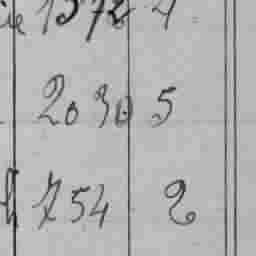 1372 4
2030 5
754 2